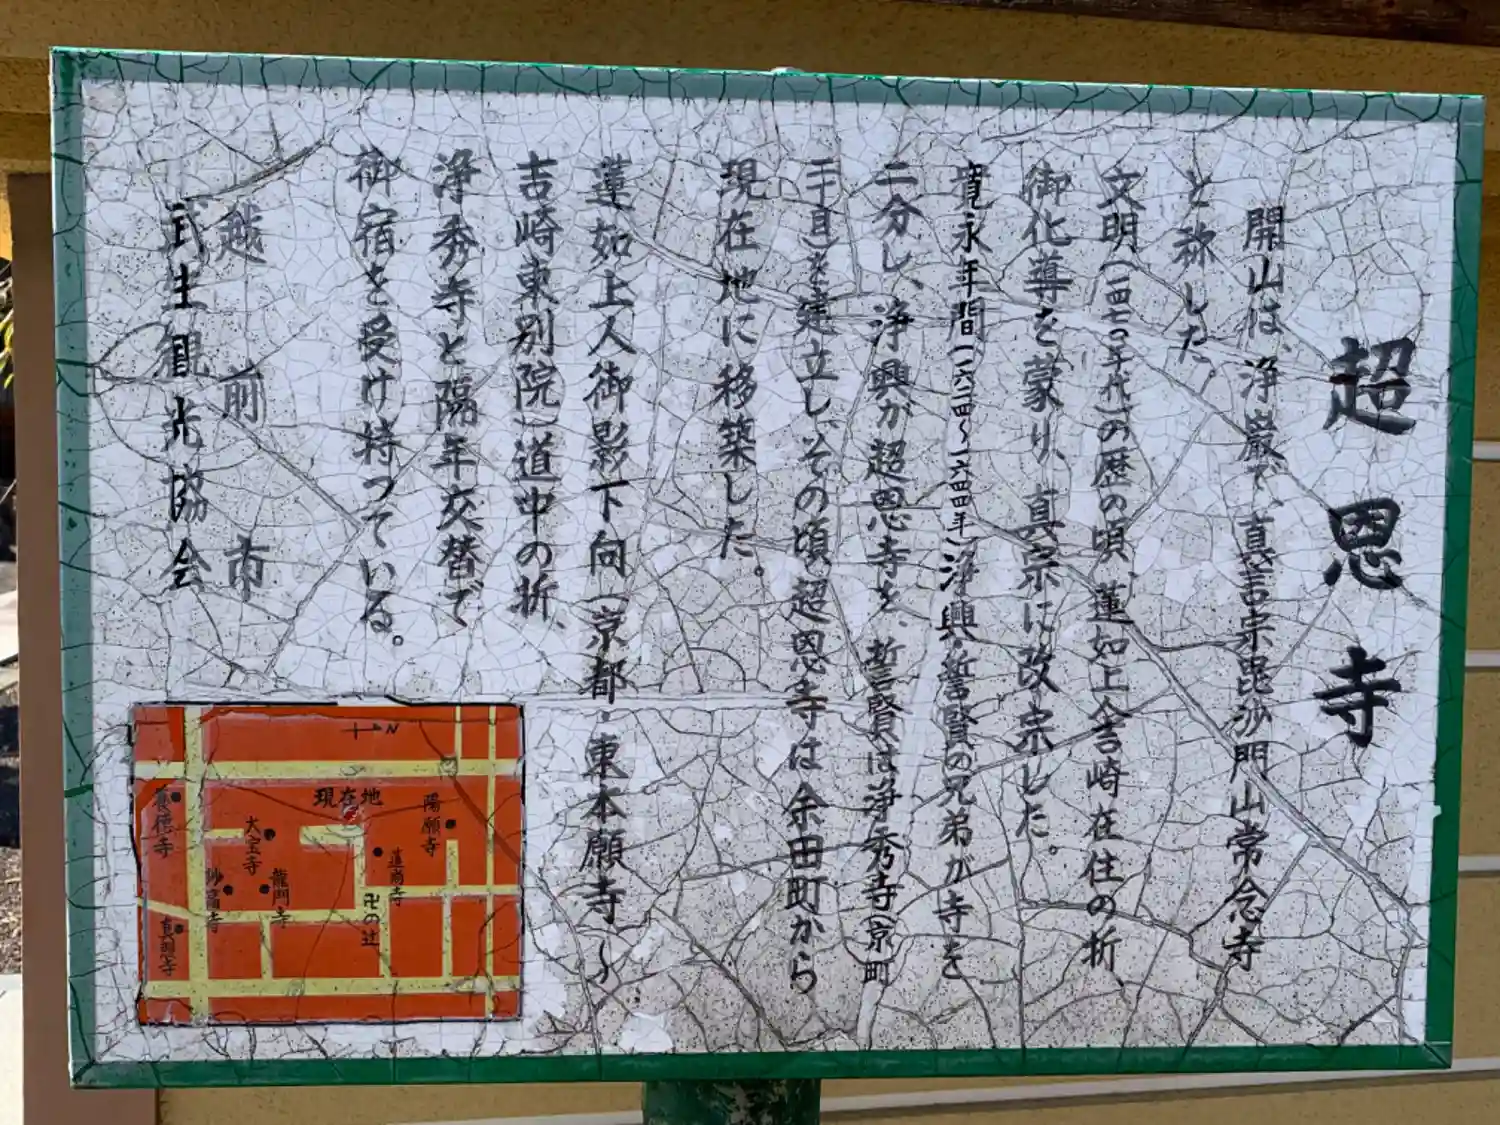 超恩寺
開山は浄巌で、真言宗毘沙門山常念寺
と称した。
文明(一四七〇年代)の歴の頃、蓮如上人吉崎在住の折、
御化導を蒙り、真宗に改宗した。
寛永年間(一六二四~一六四四年)浄興・誓賢の兄弟が寺を
二分し、浄興が超恩寺を、誓賢は浄秀寺(京町
二丁目)を建立し、その頃超恩寺は余田町から
現在地に移築した。
蓮如上人御影下向(京都・東本願寺~
吉崎東別院)道中の折、
浄秀寺と隔年交替で
御宿を受け持っている。
越前市
武生観光協会
N
現在地
陽願寺
養徳寺
大宝寺
蓮尚寺
龍門寺
妙高寺
卍の辻